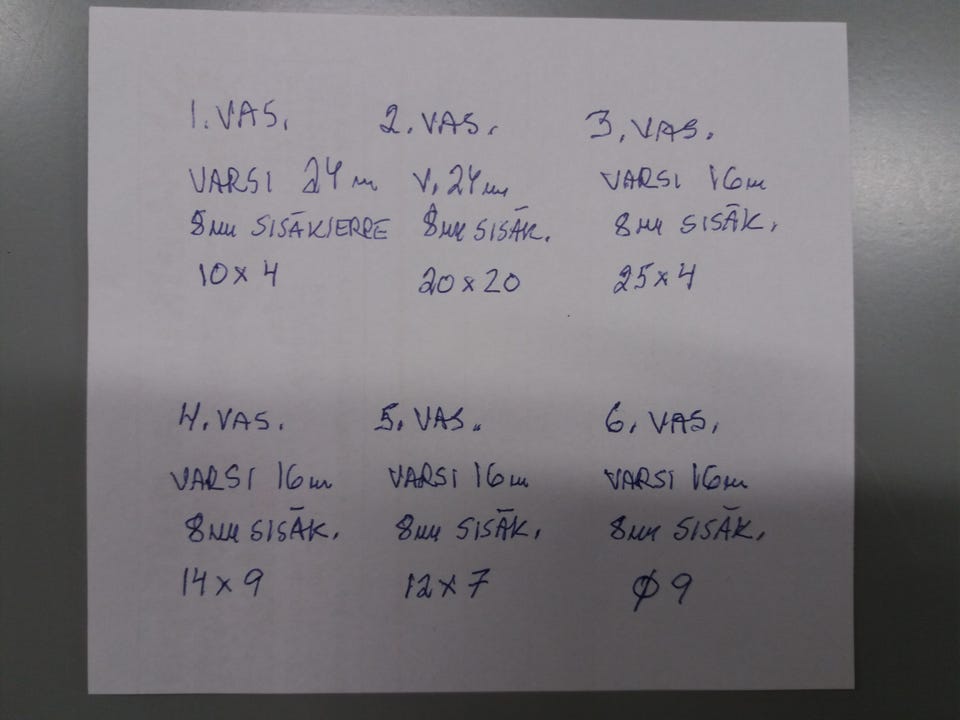 1. VAS.
VARSI 24 m
8mm SISÄKIERRE
10 x 4
2. VAS.
V. 24 m
8mm SISÄK.
20 x 20
3. VAS.
VARSI 16m
8mm SISÄK.
25 x 4
4. VAS.
VARSI 16m
8mm SISÄK.
14 x 9
5. VAS.
VARSI 16m
8mm SISÄK.
12 x 7
6. VAS.
VARSI 16m
8mm SISÄK.
Ø 9